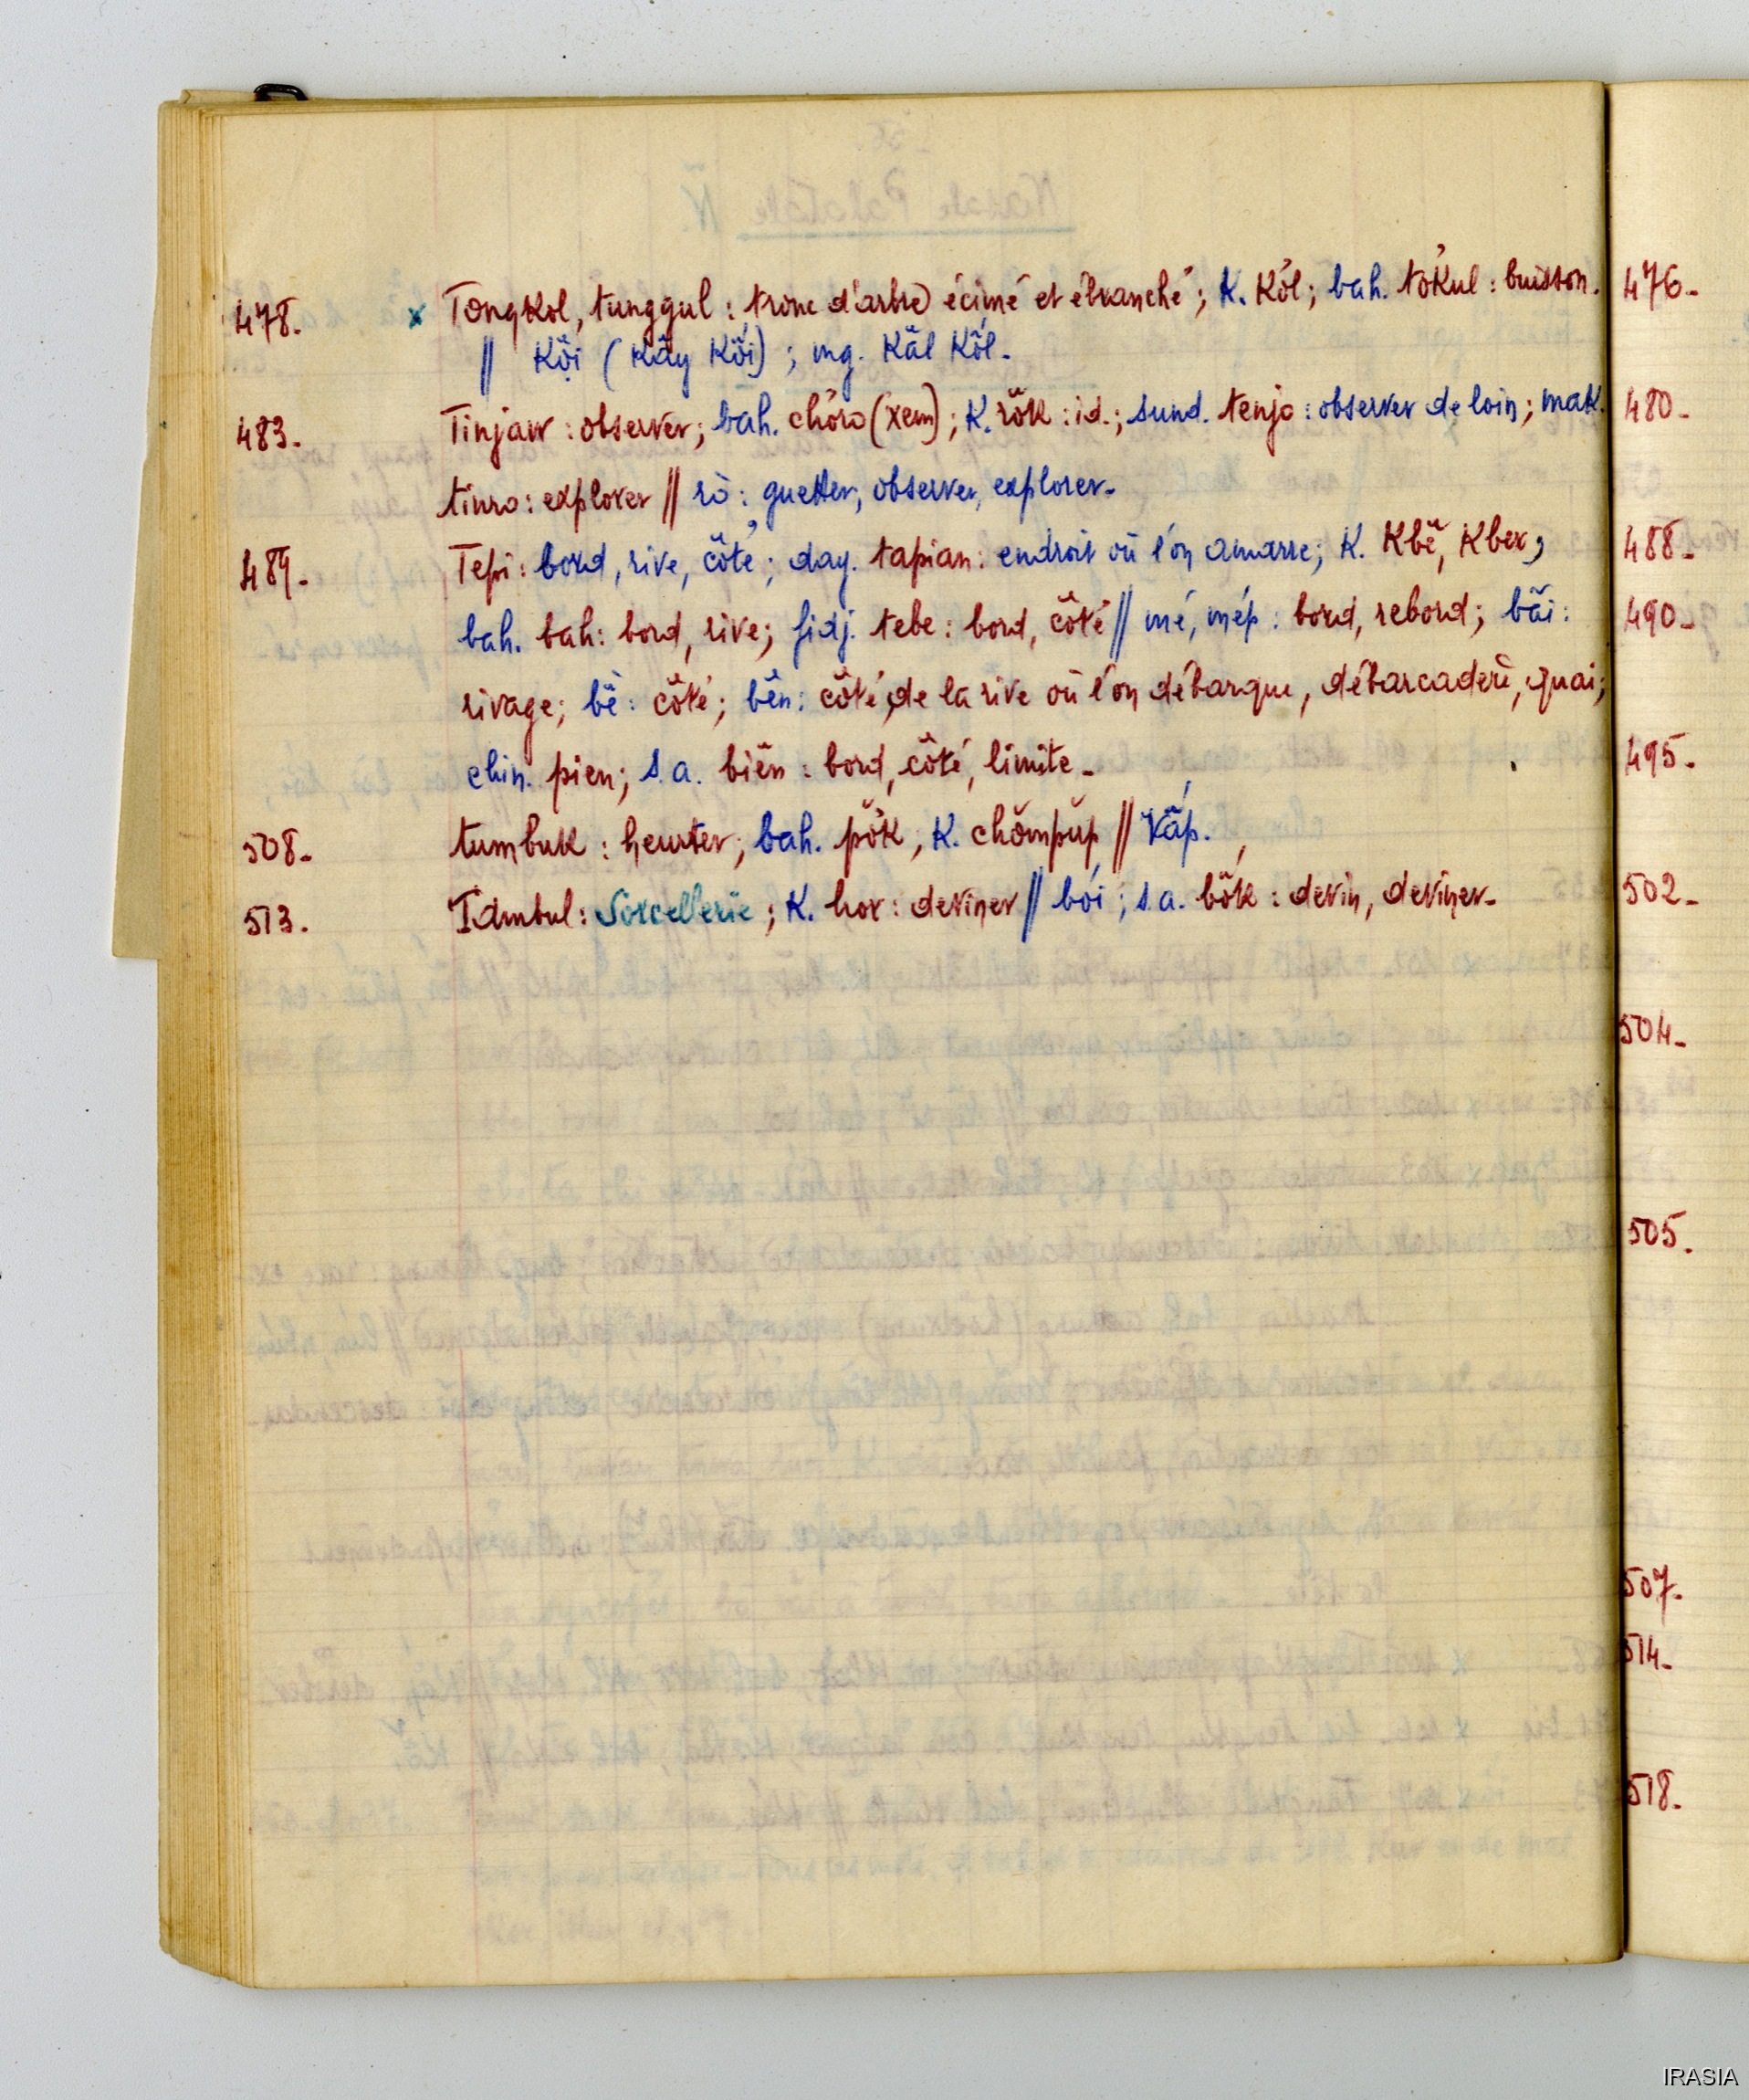 478. x Tongkol, tunggul : tronc d'arbre écimé et ébranché ; K. Kól ; bah. tơkul : buisson.
// Kõi ( Kây Kõi) ; mg. Kãl Kõl.
483. Tinjaw : observer ; bah. chơrơ (xem) ; K. rŏk : id. ; sund. tenjo : observer de loin ; mak.
tinro : explorer // rò : guetter, observer, explorer.
489. Tepi : bord, rive, côté ; day. tapian : endroit où l'on amarre ; K. Kbě, Kber,
bah. bah : bord, rive ; fidj. tebe : bord, côté // mé, mép : bord, rebord ; bãi :
rivage ; bề : côté ; bến : côté de la rive où l'on débarque, débarcadère, quai ;
chin. pien ; s.a. biên : bord, côté, limite.
508. tumbuk : heurter ; bah. pŏk ; K. chŏmpŭp // Vấp.
513. Tambul : Sorcellerie ; K. hor : deviner // bói ; s.a. bŏk : devin, deviner.
476.
480.
488.
490.
495.
502.
504.
505.
507.
514.
518.
IRASIA